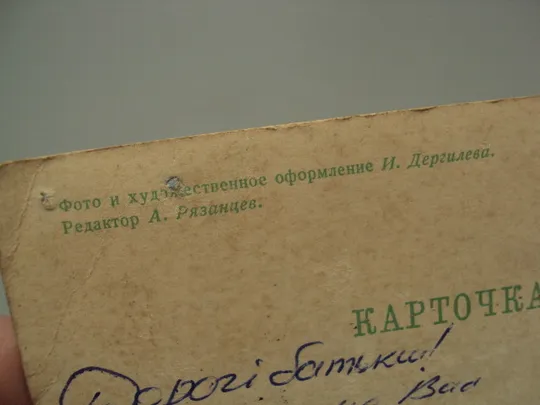 Фото и художественное оформление И. Дергилева.
Редактор А. Рязанцев.
КАРТОЧКА
Дорогі батьки!
Вас